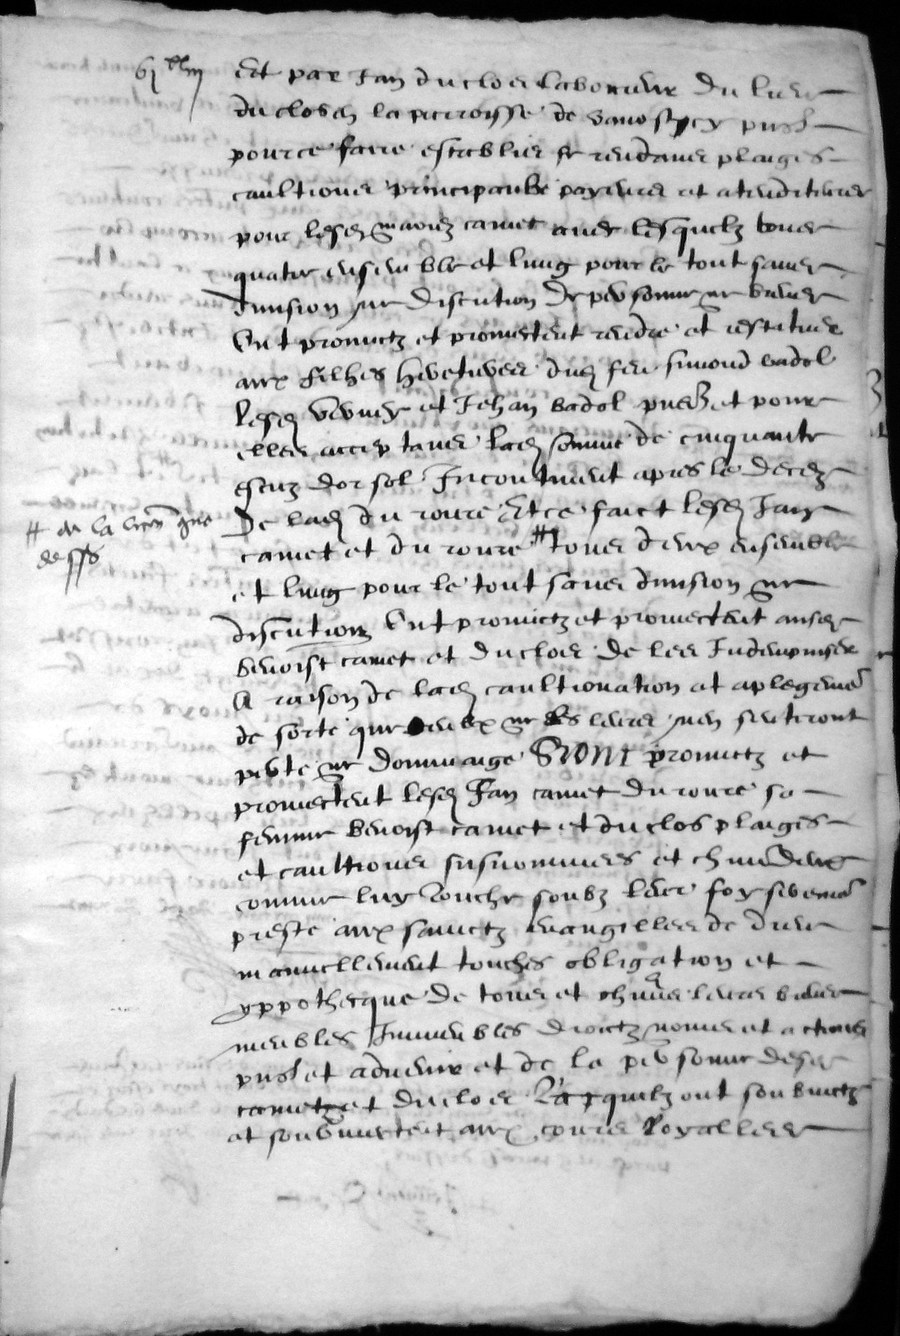 Et par Jan duclos laboureur du lieu
du clos en la parroysse de
pour ce faire establies se rendans plaiges
caultions principaulx payeurs et
pour lesd mariez camet avec lesquelz tous
quatre ensemble et lung pour le tout sans
division ne discution de personne ne biens
Ont promictz et promectent rendre et restituer
aux filhes heretieres dud feu simond badol
lesd et Jehan badol et pour
elles acceptans lad somme de cinquante
escuz dor sol Incontinant apres le decez
De lad du roure Et ce faict lesd Jan
camet et du roure # tous deux ensemble
et lung pour le tout sans division ne
discution Ont promictz et promectent ausd
benoist camet et duclos de les Indempniser
A raison de lad caultionation et aplegement
de sorte que eulx ne les leurs nen senteront
perte ne dommaige SIONT promictz et
promectent lesd Jan camet du roure sa
femme benoist camet et duclos plaiges
et caultions susnommes et chun deulx
comme luy touche soubz leur foy serement
preste aux sainctz evangilles de dieu
manuellement touches obligation et
yppothecque de tous et chuns leurs biens
meubles Immeubles droictz noms et actions
pnts et advenir et de la personne desd
camet et duclos quilz ont soubmictz
et soubzmectent aux cours Royalles
# de la